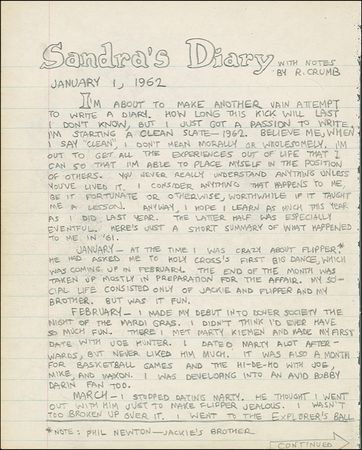 Sandra's Diary WITH NOTES
BY R. CRUMB
JANUARY 1, 1962
I'M ABOUT TO MAKE ANOTHER VAIN ATTEMPT
TO WRITE A DIARY. HOW LONG THIS KICK WILL LAST
I DON'T KNOW, BUT I JUST GOT A PASSION TO WRITE.
I'M STARTING A CLEAN SLATE—1962. BELIEVE ME, WHEN
I SAY "CLEAN", I DON'T MEAN MORALLY OR WHOLESOMELY. I'M
OUT TO GET ALL THE EXPERIENCES OUT OF LIFE THAT I
CAN SO THAT I'M ABLE TO PLACE MYSELF IN THE POSITION
OF OTHERS. YOU NEVER REALLY UNDERSTAND ANYTHING UNLESS
YOU'VE LIVED IT. I CONSIDER ANYTHING THAT HAPPENS TO ME,
BE IT FORTUNATE OR OTHERWISE, WORTHWHILE IF IT TAUGHT
ME A LESSON. ANYWAY, I HOPE I LEARN AS MUCH THIS YEAR
AS I DID LAST YEAR. THE LATTER HALF WAS ESPECIALLY
EVENTFUL. HERE'S JUST A SHORT SUMMARY OF WHAT HAPPENED
TO ME IN '61.
JANUARY— AT THE TIME I WAS CRAZY ABOUT FLIPPER.*
HE HAD ASKED ME TO HOLY CROSS'S FIRST BIG DANCE, WHICH
WAS COMING UP IN FEBRUARY. THE END OF THE MONTH WAS
TAKEN UP MOSTLY IN PREPARATION FOR THE AFFAIR. MY SO-
CIAL LIFE CONSISTED ONLY OF JACKIE AND FLIPPER AND MY
BROTHER. BUT IT WAS FUN.
FEBRUARY— I MADE MY DEBUT INTO DOVER SOCIETY THE
NIGHT OF THE MARDI GRAS. I DIDN'T THINK I'D EVER HAVE
SO MUCH FUN. THERE I MET MARTY KITCHEN AND MADE MY FIRST
DATE WITH JOE HUNTER. I DATED MARTY ALOT AFTER-
WARDS, BUT NEVER LIKED HIM MUCH. IT WAS ALSO A MONTH
FOR BASKETBALL GAMES AND THE HI-DE-HO WITH JOE,
MIKE, AND MAXON. I WAS DEVELOPING INTO AN AVID BOBBY
DARIN FAN TOO.
MARCH— I STOPPED DATING MARTY. HE THOUGHT I WENT
OUT WITH HIM JUST TO MAKE FLIPPER JEALOUS. I WASN'T
TOO BROKEN UP OVER IT. I WENT TO THE EXPLORER'S BALL
*NOTE: PHIL NEWTON—JACKIE'S BROTHER
CONTINUED